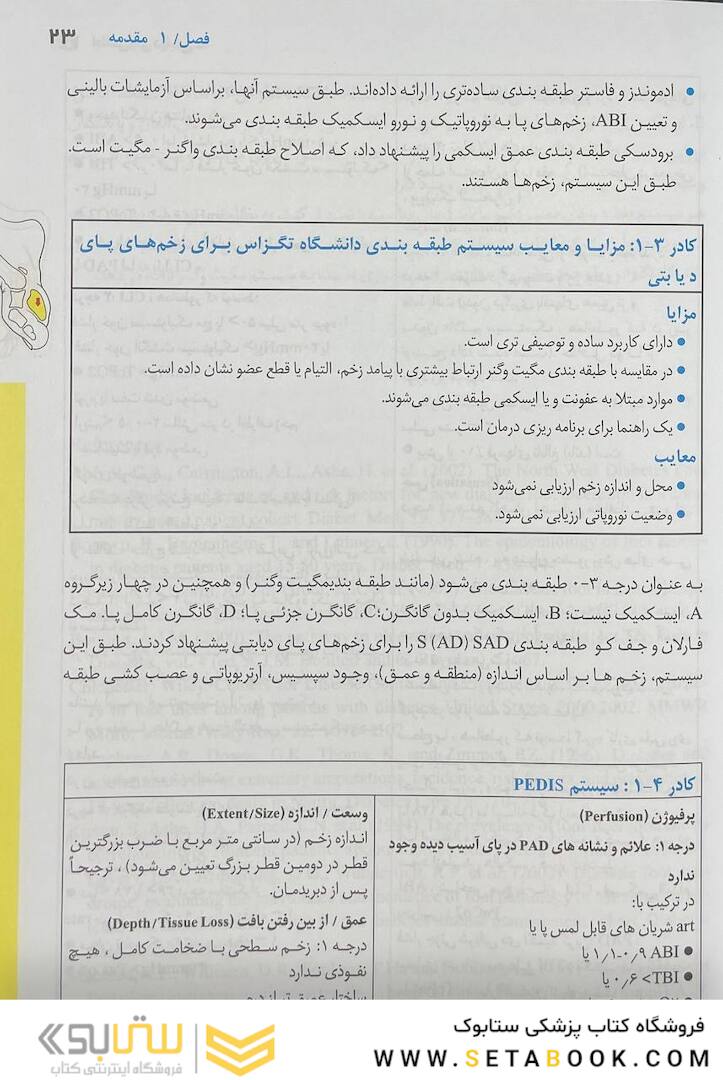 فصل/ ۱ مقدمه ۲۳
• ادموندز و فاستر طبقه بندی ساده‌تری را ارائه داده‌اند. طبق سیستم آنها، براساس آزمایشات بالینی
و تعیین ABI، زخم‌های پا به نوروپاتیک و نورو ایسکمیک طبقه بندی می‌شوند.
• برودسکی طبقه بندی عمق ایسکمی را پیشنهاد داد، که اصلاح طبقه بندی واگنر - مگیت است.
طبق این سیستم، زخم‌ها هستند.
کادر ۳-۱: مزایا و معایب سیستم طبقه بندی دانشگاه تگزاس برای زخم‌های پای
دیابتی
مزایا
• دارای کاربرد ساده و توصیفی تری است.
• در مقایسه با طبقه بندی مگیت وگنر ارتباط بیشتری با پیامد زخم، التیام یا قطع عضو نشان داده است.
• موارد مبتلا به عفونت و یا ایسکمی طبقه بندی می‌شوند.
• یک راهنما برای برنامه ریزی درمان است.
معایب
• محل و اندازه زخم ارزیابی نمی‌شود
• وضعیت نوروپاتی ارزیابی نمی‌شود.
به عنوان درجه ۳-۰ طبقه بندی می‌شود (مانند طبقه بندیمگیت وگنر) و همچنین در چهار زیرگروه
A، ایسکمیک نیست؛ B، ایسکمیک بدون گانگرن؛C، گانگرن جزئی پا؛ D، گانگرن کامل پا. مک
فارلان و جف کو طبقه بندی S (AD) SAD را برای زخم‌های پای دیابتی پیشنهاد کردند. طبق این
سیستم، زخم ها بر اساس اندازه (منطقه و عمق)، وجود سپسیس، آرتریوپاتی و عصب کشی طبقه
کادر ۴-۱ : سیستم PEDIS
پرفیوژن (Perfusion)
درجه ۱: علائم و نشانه های PAD در پای آسیب دیده وجود
ندارد
در ترکیب با:
art شریان های قابل لمس پا یا
• ABI ۰٫۹-۱٫۱ یا
• TBI> ۰٫۶ یا
وسعت / اندازه (Extent/Size)
اندازه زخم (در سانتی متر مربع با ضرب بزرگترین
قطر در دومین قطر بزرگ تعیین می‌شود) ، ترجیحاً
پس از دبریدمان.
عمق / از بین رفتن بافت (Depth/Tissue Loss)
درجه ۱: زخم سطحی با ضخامت کامل ، هیچ
نفوذی ندارد
فروشگاه کتاب پزشکی ستابوک
WWW.SETABOOK.COM
ستابوک
فروشگاه اینترنتی کتاب